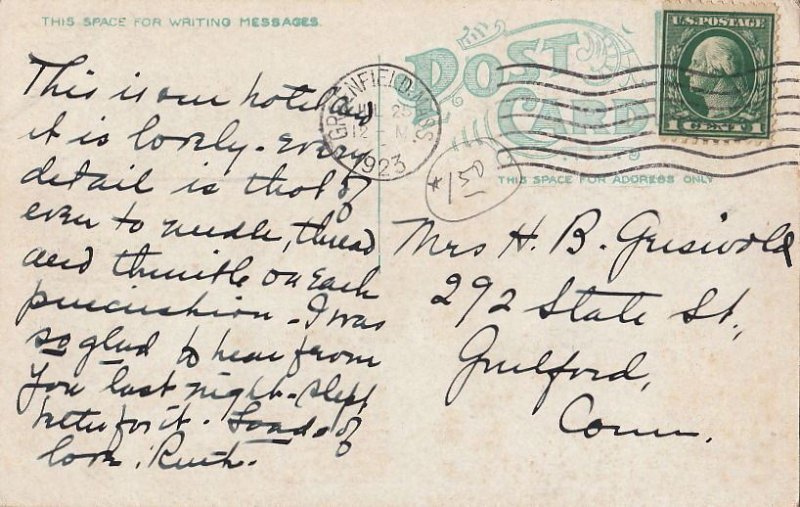 THIS SPACE FOR WRITING MESSAGES.
POST CARD
THIS SPACE FOR ADDRESS ONLY
U.S. POSTAGE
1 CENT 1
GREENFIELD, MASS.
JUL 25
12 - M
1923
150
This is our hotel and
it is lovely - every
detail is thot of
even to needle, thread
and thimble on each
pincushion - I was
so glad to hear from
you last night - slept
better for it. Loads of
love, Ruth.
Mrs H. B. Griswold
292 State St.,
Guilford,
Conn.